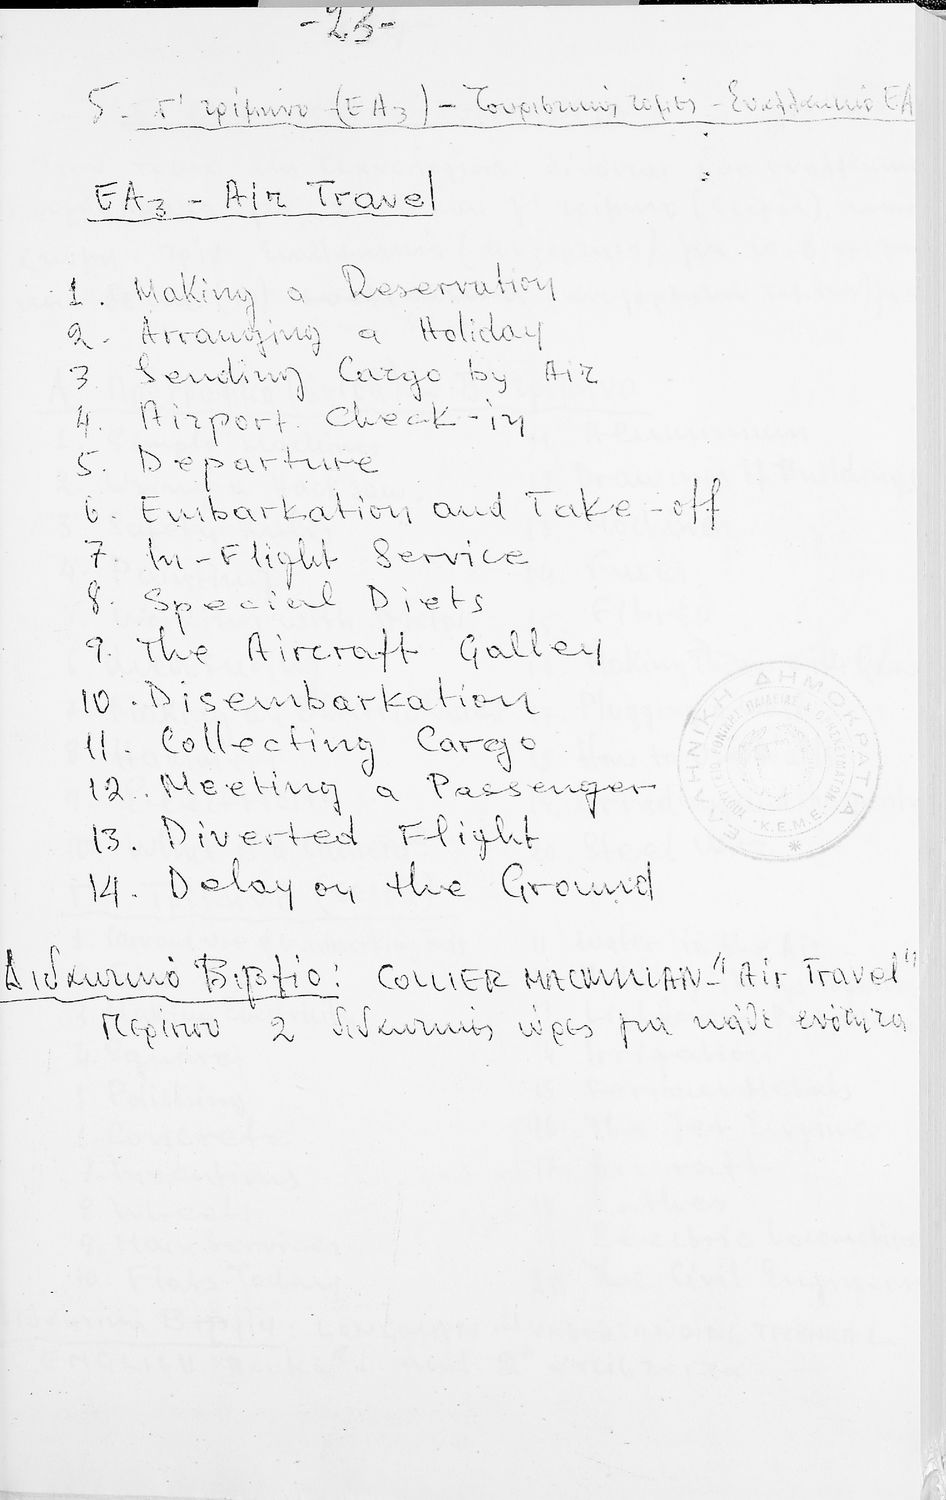 -23-
5. Γ' τρίμηνο (ΕΑ3) - Τουριστικός τομέας - Εναλλακτικό ΕΑ
ΕΑ3 - Air Travel
1. Making a Reservation
2. Arranging a Holiday
3 Sending Cargo by Air
4. Airport Check-in
5. Departure
6. Embarkation and Take-off
7. In-Flight Service
8. Special Diets
9. The Aircraft Galley
10. Disembarkation
11. Collecting Cargo
12. Meeting a Passenger
13. Diverted Flight
14. Delay on the Ground
ΕΛΛΗΝΙΚΗ ΔΗΜΟΚΡΑΤΙΑ
Κ.Ε.Μ.Ε.
Διδακτικό Βιβλίο: COLLIER MACMILLAN - "Air Travel"
Περίπου 2 διδακτικές ώρες για κάθε ενότητα